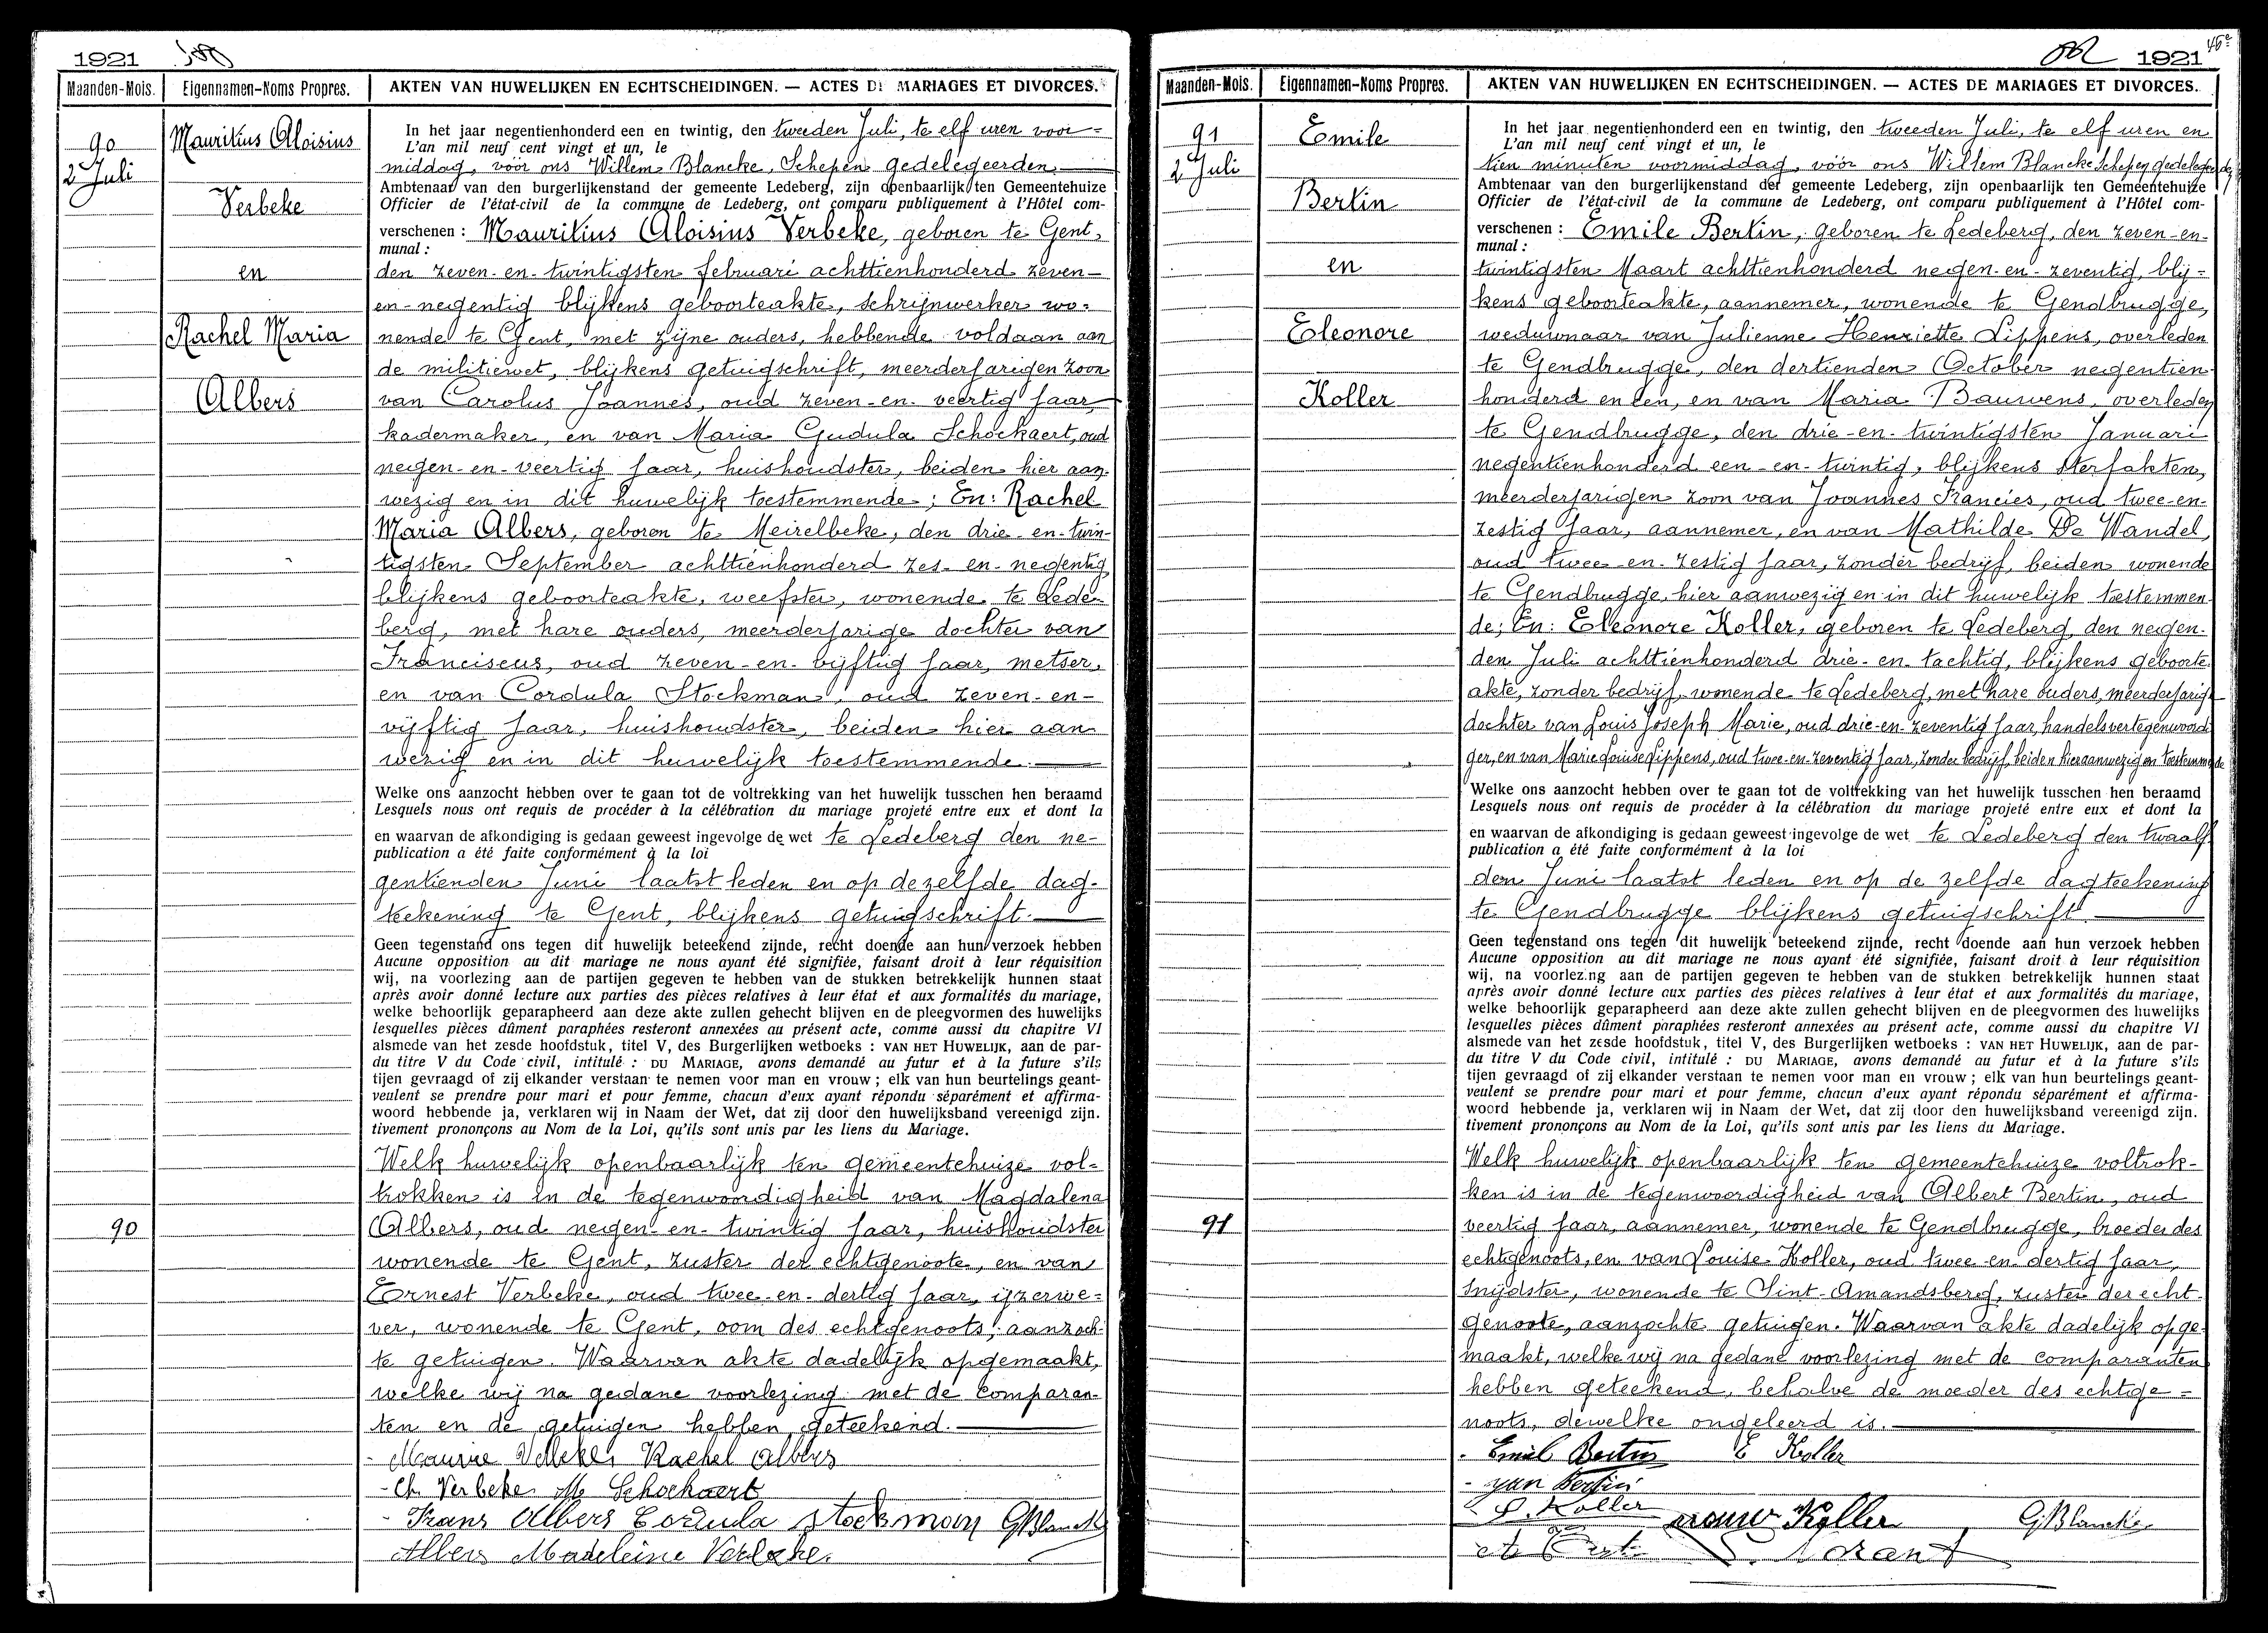 1921
Maanden-Mois.
Eigennamen-Noms Propres.
AKTEN VAN HUWELIJKEN EN ECHTSCHEIDINGEN. — ACTES DE MARIAGES ET DIVORCES.
90
2 Juli
Mauritius Aloisius
Verbeke
en
Rachel Maria
Albers
In het jaar negentienhonderd een en twintig, den tweeden Juli, te elf uren voor=
L'an mil neuf cent vingt et un, le
middag, vóór ons Willem Blancke, Schepen gedelegeerden
Ambtenaar van den burgerlijkenstand der gemeente Ledeberg, zijn openbaarlijk ten Gemeentehuize
Officier de l'état-civil de la commune de Ledeberg, ont comparu publiquement à l'Hôtel com-
verschenen : Mauritius Aloisius Verbeke, geboren te Gent,
munal :
den zeven-en-twintigsten februari achttienhonderd zeven-
en-negentig blijkens geboorteakte, schrijnwerker wo=
nende te Gent, met zijne ouders, hebbende voldaan aan
de militiewet, blijkens getuigschrift, meerderjarigen zoon
van Carolus Joannes, oud zeven-en-veertig jaar,
kadermaker, en van Maria Gudula Schockaert, oud
negen-en-veertig jaar, huishoudster, beiden hier aan
wezig en in dit huwelijk toestemmende; En: Rachel
Maria Albers, geboren te Meirelbeke, den drie-en-twin-
tigsten September achttienhonderd zes-en-negentig
blijkens geboorteakte, weefster, wonende te Lede-
berg, met hare ouders, meerderjarige dochter van
Franciscus, oud zeven-en-vijftig jaar, metser,
en van Cordula Stockman, oud zeven-en-
vijftig jaar, huishoudster, beiden hier aan
wezig en in dit huwelijk toestemmende.
Welke ons aanzocht hebben over te gaan tot de voltrekking van het huwelijk tusschen hen beraamd
Lesquels nous ont requis de procéder à la célébration du mariage projeté entre eux et dont la
en waarvan de afkondiging is gedaan geweest ingevolge de wet te Ledeberg den ne-
publication a été faite conformément à la loi
gentienden Juni laatst leden en op dezelfde dag-
teekening te Gent, blijkens getuigschrift.
Geen tegenstand ons tegen dit huwelijk beteekend zijnde, recht doende aan hun verzoek hebben
Aucune opposition au dit mariage ne nous ayant été signifiée, faisant droit à leur réquisition
wij, na voorlezing aan de partijen gegeven te hebben van de stukken betrekkelijk hunnen staat
après avoir donné lecture aux parties des pièces relatives à leur état et aux formalités du mariage,
welke behoorlijk geparapheerd aan deze akte zullen gehecht blijven en de pleegvormen des huwelijks
lesquelles pièces dûment paraphées resteront annexées au présent acte, comme aussi du chapitre VI
alsmede van het zesde hoofdstuk, titel V, des Burgerlijken wetboeks : VAN HET HUWELIJK, aan de par-
du titre V du Code civil, intitulé : DU MARIAGE, avons demandé au futur et à la future s'ils
tijen gevraagd of zij elkander verstaan te nemen voor man en vrouw ; elk van hun beurtelings geant-
veulent se prendre pour mari et pour femme, chacun d'eux ayant répondu séparément et affirma-
woord hebbende ja, verklaren wij in Naam der Wet, dat zij door den huwelijksband vereenigd zijn.
tivement prononçons au Nom de la Loi, qu'ils sont unis par les liens du Mariage.
Welk huwelijk openbaarlijk ten gemeentehuize vol-
trokken is in de tegenwoordigheid van Magdalena
90
Albers, oud negen-en-twintig jaar, huishoudster
wonende te Gent, zuster der echtgenoote, en van
Ernest Verbeke, oud twee-en-dertig jaar, ijzerwe=
ver, wonende te Gent, oom des echtgenoots, aanzoch-
te getuigen. Waarvan akte dadelijk opgemaakt,
welke wij na gedane voorlezing met de comparan-
ten en de getuigen hebben geteekend.
Maurice Verbeke Rachel Albers
Ch Verbeke M Schockaert
Frans Albers Cordula Stockman GBlancke
Albers Madeleine Verbeke
1921
45e
Maanden-Mois.
Eigennamen-Noms Propres.
AKTEN VAN HUWELIJKEN EN ECHTSCHEIDINGEN. — ACTES DE MARIAGES ET DIVORCES.
91
2 Juli
Emile
Bertin
en
Eleonore
Koller
In het jaar negentienhonderd een en twintig, den tweeden Juli, te elf uren en
L'an mil neuf cent vingt et un, le
tien minuten voormiddag, vóór ons Willem Blancke Schepen gedelegeerden
Ambtenaar van den burgerlijkenstand der gemeente Ledeberg, zijn openbaarlijk ten Gemeentehuize
Officier de l'état-civil de la commune de Ledeberg, ont comparu publiquement à l'Hôtel com-
verschenen : Emile Bertin, geboren te Ledeberg, den zeven-en-
munal :
twintigsten Maart achttienhonderd negen-en-zeventig, blij=
kens geboorteakte, aannemer, wonende te Gendbrugge,
weduwnaar van Julienne Henriette Lippens, overleden
te Gendbrugge, den dertienden October negentien
honderd en een, en van Maria Bauwens, overleden
te Gendbrugge, den drie-en-twintigsten Januari
negentienhonderd een-en-twintig, blijkens sterfakten,
meerderjarigen zoon van Joannes Francies, oud twee-en-
zestig jaar, aannemer, en van Mathilde De Wandel,
oud twee-en-zestig jaar, zonder bedrijf, beiden wonende
te Gendbrugge, hier aanwezig en in dit huwelijk toestemmen-
de; En: Eleonore Koller, geboren te Ledeberg, den negen-
den Juli achttienhonderd drie-en-tachtig, blijkens geboorte
akte, zonder bedrijf, wonende te Ledeberg, met hare ouders, meerderjarige
dochter van Louis Joseph Marie, oud drie-en-zeventig jaar, handelsvertegenwoordi
ger, en van Marie Louise Lippens, oud twee-en-zeventig jaar, zonder bedrijf, beiden hier aanwezig en toestemmende
Welke ons aanzocht hebben over te gaan tot de voltrekking van het huwelijk tusschen hen beraamd
Lesquels nous ont requis de procéder à la célébration du mariage projeté entre eux et dont la
en waarvan de afkondiging is gedaan geweest ingevolge de wet te Ledeberg den twaalf
publication a été faite conformément à la loi
den Juni laatst leden en op de zelfde dagteekening
te Gendbrugge blijkens getuigschrift.
Geen tegenstand ons tegen dit huwelijk beteekend zijnde, recht doende aan hun verzoek hebben
Aucune opposition au dit mariage ne nous ayant été signifiée, faisant droit à leur réquisition
wij, na voorlezing aan de partijen gegeven te hebben van de stukken betrekkelijk hunnen staat
après avoir donné lecture aux parties des pièces relatives à leur état et aux formalités du mariage,
welke behoorlijk geparapheerd aan deze akte zullen gehecht blijven en de pleegvormen des huwelijks
lesquelles pièces dûment paraphées resteront annexées au présent acte, comme aussi du chapitre VI
alsmede van het zesde hoofdstuk, titel V, des Burgerlijken wetboeks : VAN HET HUWELIJK, aan de par-
du titre V du Code civil, intitulé : DU MARIAGE, avons demandé au futur et à la future s'ils
tijen gevraagd of zij elkander verstaan te nemen voor man en vrouw ; elk van hun beurtelings geant-
veulent se prendre pour mari et pour femme, chacun d'eux ayant répondu séparément et affirma-
woord hebbende ja, verklaren wij in Naam der Wet, dat zij door den huwelijksband vereenigd zijn.
tivement prononçons au Nom de la Loi, qu'ils sont unis par les liens du Mariage.
Welk huwelijk openbaarlijk ten gemeentehuize voltrok-
ken is in de tegenwoordigheid van Albert Bertin, oud
91
veertig jaar, aannemer, wonende te Gendbrugge, broeder des
echtgenoots, en van Louise Koller, oud twee-en-dertig jaar,
snijdster, wonende te Sint-Amandsberg, zuster der echt-
genoote, aanzochte getuigen. Waarvan akte dadelijk opge-
maakt, welke wij na gedane voorlezing met de comparanten
hebben geteekend, behalve de moeder des echtge=
noots, dewelke ongeleerd is.
Emiel Bertin E Koller
Jan Bertin
L. Koller vrouw Koller GBlancke